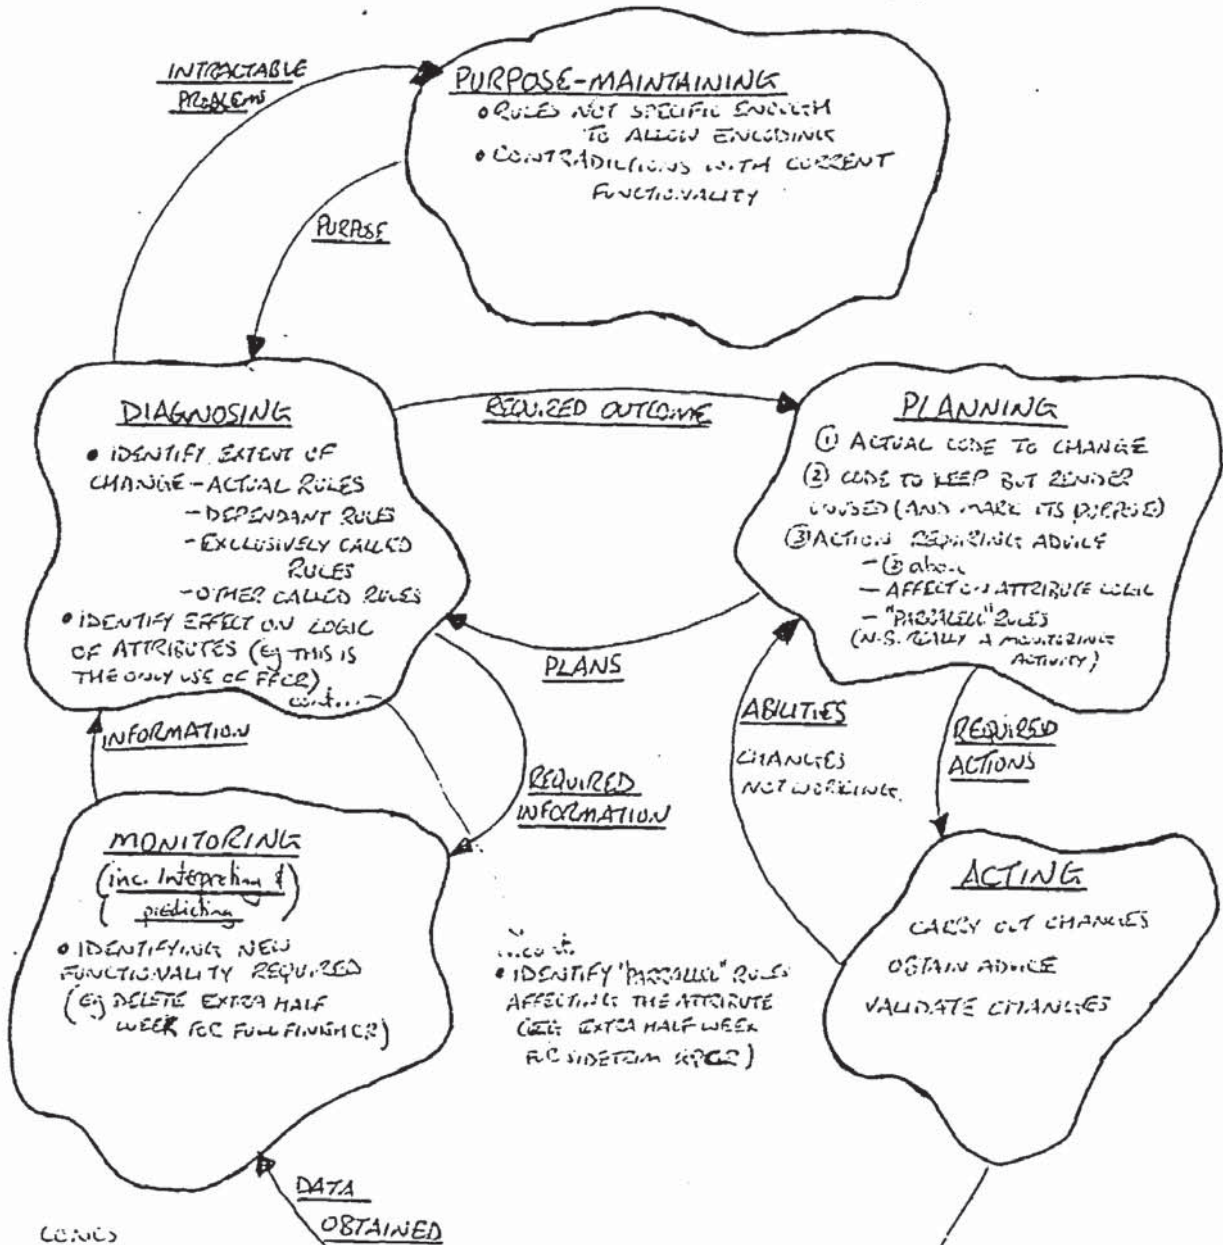 INTRACTABLE
PROBLEMS
PURPOSE-MAINTAINING
• RULES NOT SPECIFIC ENOUGH
TO ALLOW ENCODING
• CONTRADICTIONS WITH CURRENT
FUNCTIONALITY
PURPOSE
DIAGNOSING
• IDENTIFY EXTENT OF
CHANGE - ACTUAL RULES
- DEPENDANT RULES
- EXCLUSIVELY CALLED
RULES
- OTHER CALLED RULES
• IDENTIFY EFFECT ON LOGIC
OF ATTRIBUTES (Eg THIS IS
THE ONLY USE OF FFCR)
cont...
REQUIRED OUTCOME
PLANNING
① ACTUAL CODE TO CHANGE
② CODE TO KEEP BUT RENDER
UNUSED (AND MARK ITS PURPOSE)
③ ACTION REQUIRING ADVICE
- ② above
- AFFECT ON ATTRIBUTE LOGIC
- "PARRALLEL" RULES
(N.B. REALLY A MONITORING
ACTIVITY)
PLANS
INFORMATION
REQUIRED
INFORMATION
ABILITIES
CHANGES
NOT WORKING
REQUIRED
ACTIONS
MONITORING
(inc. Interpreting &
predicting)
• IDENTIFYING NEW
FUNCTIONALITY REQUIRED
(Eg DELETE EXTRA HALF
WEEK FOR FULL FINISH CR)
• IDENTIFY "PARRALLEL" RULES
AFFECTING THE ATTRIBUTE
EXTRA HALF WEEK
FOR SIDETRIM
ACTING
CARRY OUT CHANGES
OBTAIN ADVICE
VALIDATE CHANGES
DATA
OBTAINED